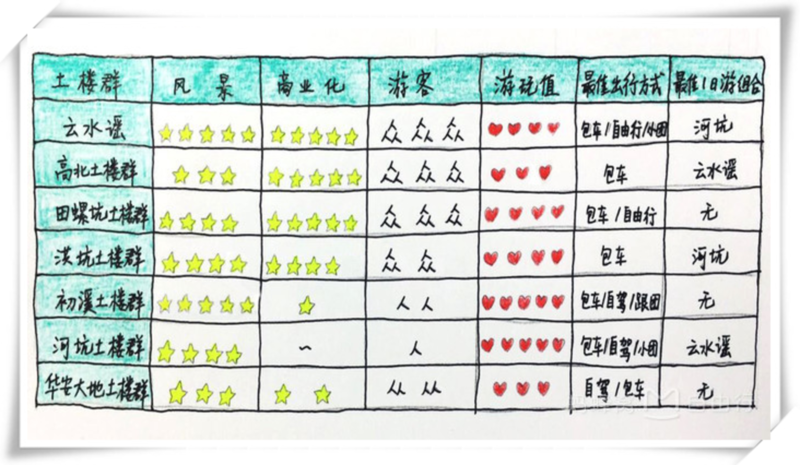 土楼群 风景 商业化 游客 游玩值 最佳出行方式 最佳1日游组合
云水谣 众 众 众 包车/自由行/小团 河坑
高北土楼群 众 众 众 包车 云水谣
田螺坑土楼群 众 众 众 包车/自由行 无
洪坑土楼群 众 众 包车 河坑
初溪土楼群 人 人 包车/自驾/跟团 无
河坑土楼群 ~ 人 包车/自驾/小团 云水谣
华安大地土楼群 从 从 自驾/包车 无